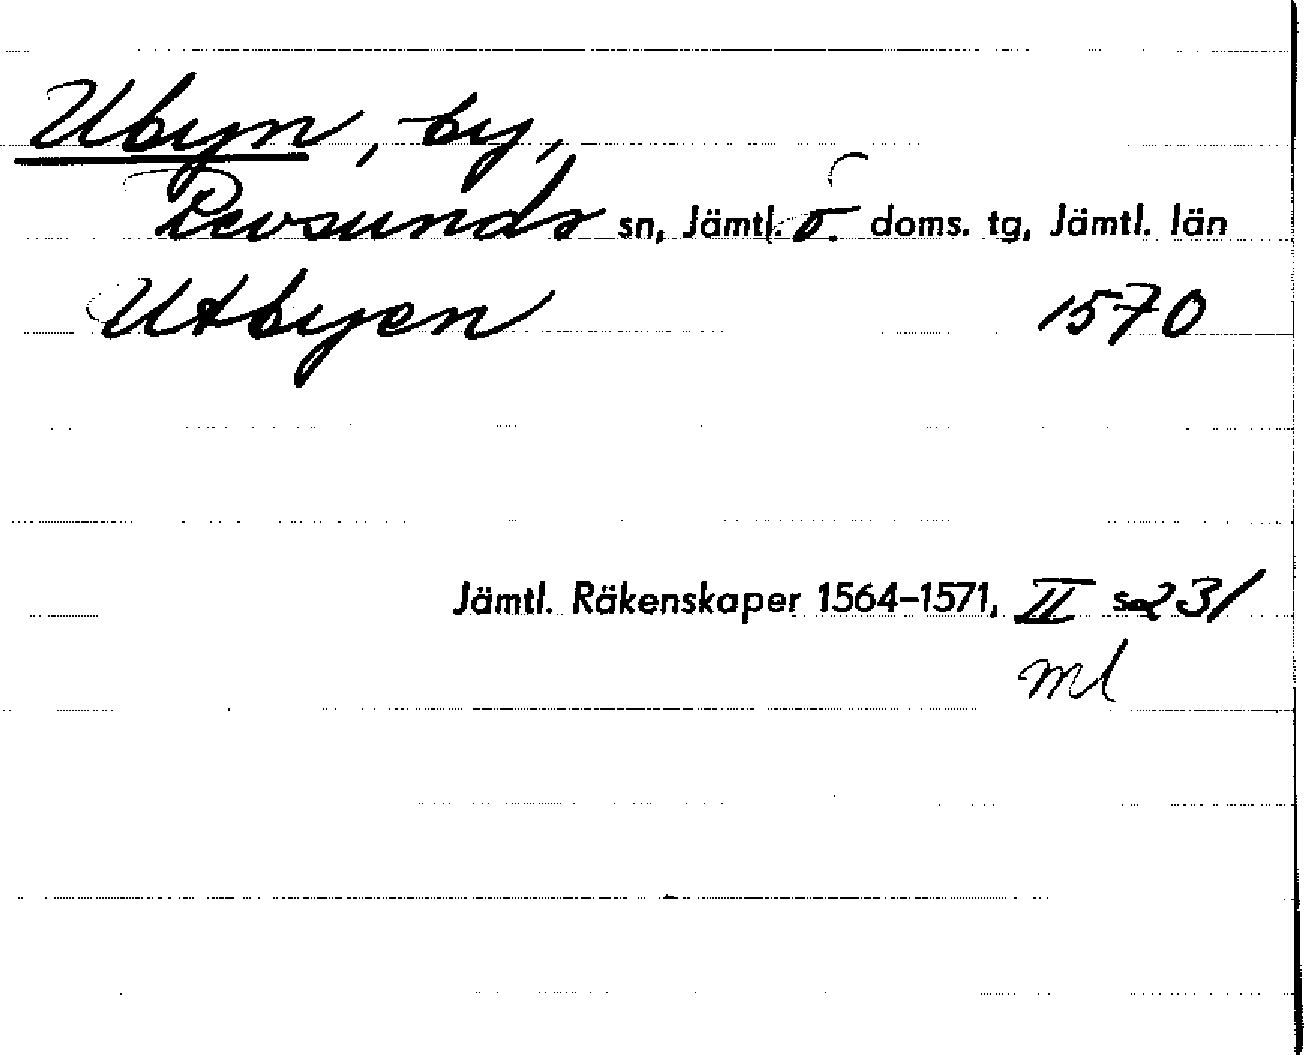 Ubyn, by,
Revsunds sn, Jämtl. ö. doms. tg, Jämtl. län
Utbyen 1570
Jämtl. Räkenskaper 1564-1571, II s 231
ml